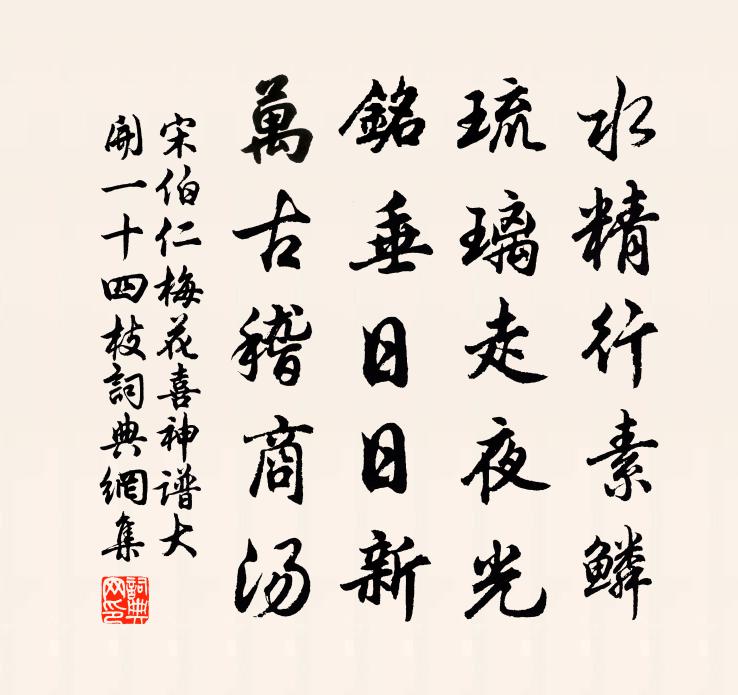 水精行素鳞
琉璃走夜光
銘垂日日新
萬古稽商汤
宋伯仁梅花喜神谱大
開一十四枝詞典網集
詞典網印